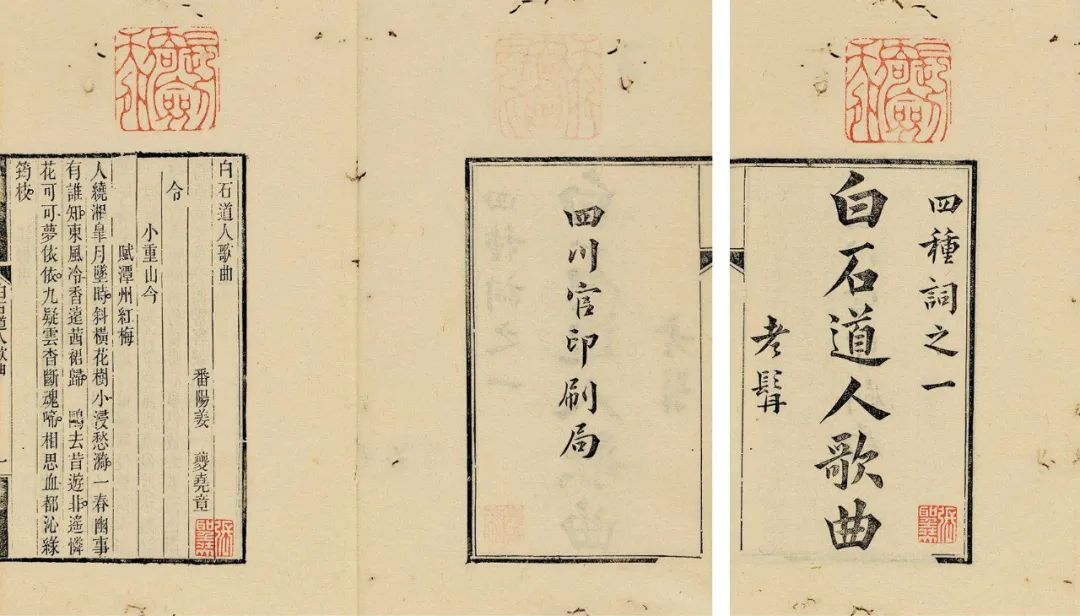 四種詞之一
白石道人歌曲
老髯
四川官印刷局
白石道人歌曲
番陽姜　夔堯章
令
小重山令
賦潭州紅梅
人繞湘皋月墜時斜橫花樹小浸愁漪一春幽事
有誰知東風冷香遠茜裙歸　鷗去昔遊非遙憐
花可可夢依依九疑雲杳斷魂啼相思血都沁綠
筠枝
白石道人歌曲
一